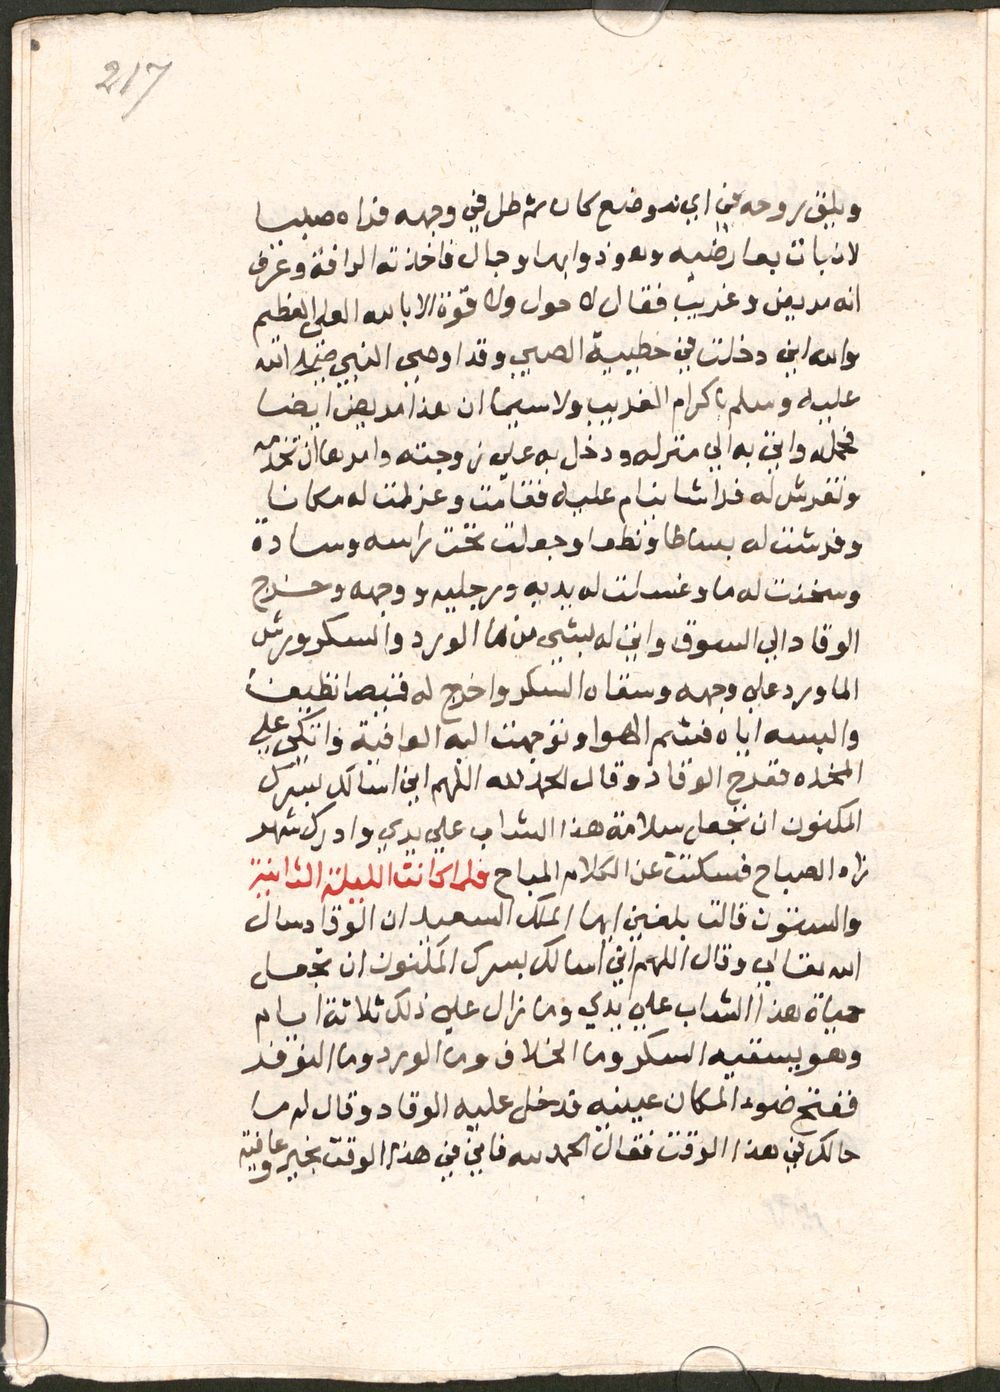 217
ويلقي روحه في اي موضع كان ثم طل في وجهه فراه صبيا
لا نبات بعارضيه وهو ذو ابها وجمال فاخذته الرافة وعرف
انه مريض وغريب فقال لا حول ولا قوة الا بالله العلي العظيم
والله اني دخلت في خطيية الصبي وقد اوصي النبي صلي الله
عليه وسلم باكرام الغريب ولا سيما ان هذا مريض ايضا
فحمله واتي به الي منزله ودخل به علي زوجته وامرها ان تخدمه
وتفرش له فراشا ينام عليه فقامت وعزلت له مكانا
وفرشت له بساطا ونطعا وجعلت تحت راسه وسادة
وسخنت له ما وغسلت له يديه ورجليه ووجهه وخرج
الوقاد الي السوق واتي له بشي من ما الورد والسكر ورش
الماورد علي وجهه وسقاه السكر واخرج له قميصا نظيفا
والبسه اياه فشم الهوا وتوجهت اليه العافية واتكي علي
المخده ففرح الوقاد وقال الحمد لله اللهم اني اسالك بسرك
المكنون ان تجعل سلامة هذا الشاب علي يدي وادرك شهر
زاد الصباح فسكتت عن الكلام المباح فلما كانت الليلة الثانية
والستون قالت بلغني ايها الملك السعيد ان الوقاد سال
الله تعالي وقال اللهم اني اسالك بسرك المكنون ان تجعل
حياة هذا الشاب علي يدي وما زال علي ذلك ثلاثة ايام
وهو يسقيه السكر وما الخلاف وما الورد وما النوفر
ففتح ضوء المكان عينيه فدخل عليه الوقاد وقال له ما
حالك في هذا الوقت فقال الحمد لله فاني في هذا الوقت بخير وعافية